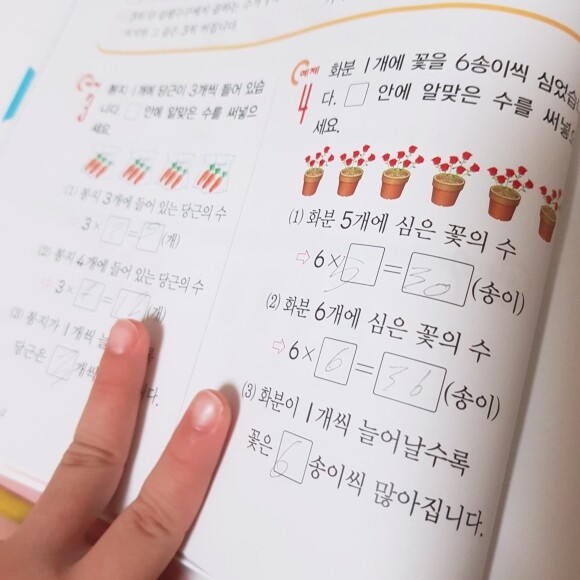 예제
3
봉지 1개에 당근이 3개씩 들어 있습
니다. □ 안에 알맞은 수를 써넣으
세요.
(1) 봉지 3개에 들어 있는 당근의 수
3×□=□(개)
(2) 봉지 4개에 들어 있는 당근의 수
3×4=12(개)
(3) 봉지가 1개씩
당근은 3개씩
예제
4
화분 1개에 꽃을 6송이씩 심었습
다. □ 안에 알맞은 수를 써넣
세요.
(1) 화분 5개에 심은 꽃의 수
⇨ 6×5=30(송이)
(2) 화분 6개에 심은 꽃의 수
⇨ 6×6=36(송이)
(3) 화분이 1개씩 늘어날수록
꽃은 6송이씩 많아집니다.